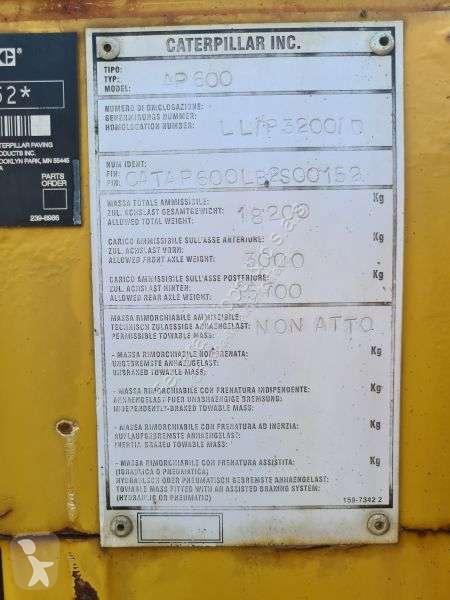 KE
52*
CATERPILLAR PAVING
PRODUCTS INC.
BROOKLYN PARK, MN 55445
PARTS
ORDER
239-6986
CATERPILLAR INC.
TIPO:
TYP:
MODEL:
AP600
NUMERO DI OMOLOGAZIONE:
GENEHMIGUNGS NUMMER:
HOMOLOGATION NUMBER:
NUM IDENT:
FIN:
PIN:
MASSA TOTALE AMMISSIBILE:
ZUL. ACHSLAST GESAMTGEWICHT:
ALLOWED TOTAL WEIGHT:
18200 Kg
CARICO AMMISSIBILE SULL'ASSE ANTERIORE:
ZUL. ACHSLAST VORN:
ALLOWED FRONT AXLE WEIGHT:
3000 Kg
CARICO AMMISSIBILE SULL'ASSE POSTERIORE:
ZUL. ACHSLAST HINTEN:
ALLOWED REAR AXLE WEIGHT:
Kg
MASSA RIMORCHIABILE AMMISSIBILE:
TECHNISCH ZULAESSIGE ANHAENGELAST:
PERMISSIBLE TOWABLE MASS:
NON ATTO
- MASSA RIMORCHIABILE NON FRENATA:
UNGEBREMSTE ANHAENGELAST:
UNBRAKED TOWABLE MASS:
Kg
- MASSA RIMORCHIABILE CON FRENATURA INDIPENDENTE:
ANHAENGELAST FUER UNABHAENGIGE BREMSUNG:
INDEPENDENTLY-BRAKED TOWABLE MASS:
Kg
- MASSA RIMORCHIABILE CON FRENATURA AD INERZIA:
AUFLAUFGEBREMSTE ANHAENGELAST:
INERTIA BRAKED TOWABLE MASS:
Kg
- MASSA RIMORCHIABILE CON FRENATURA ASSISTITA:
(IDRAULICA O PNEUMATICA)
HYDRAULISCH ODER PNEUMATISCH GEBREMSTE ANHAENGELAST:
TOWABLE MASS FITTED WITH AN ASSISTED BRAKING SYSTEM:
(HYDRAULIC OR PNEUMATIC)
Kg
159-7342 2